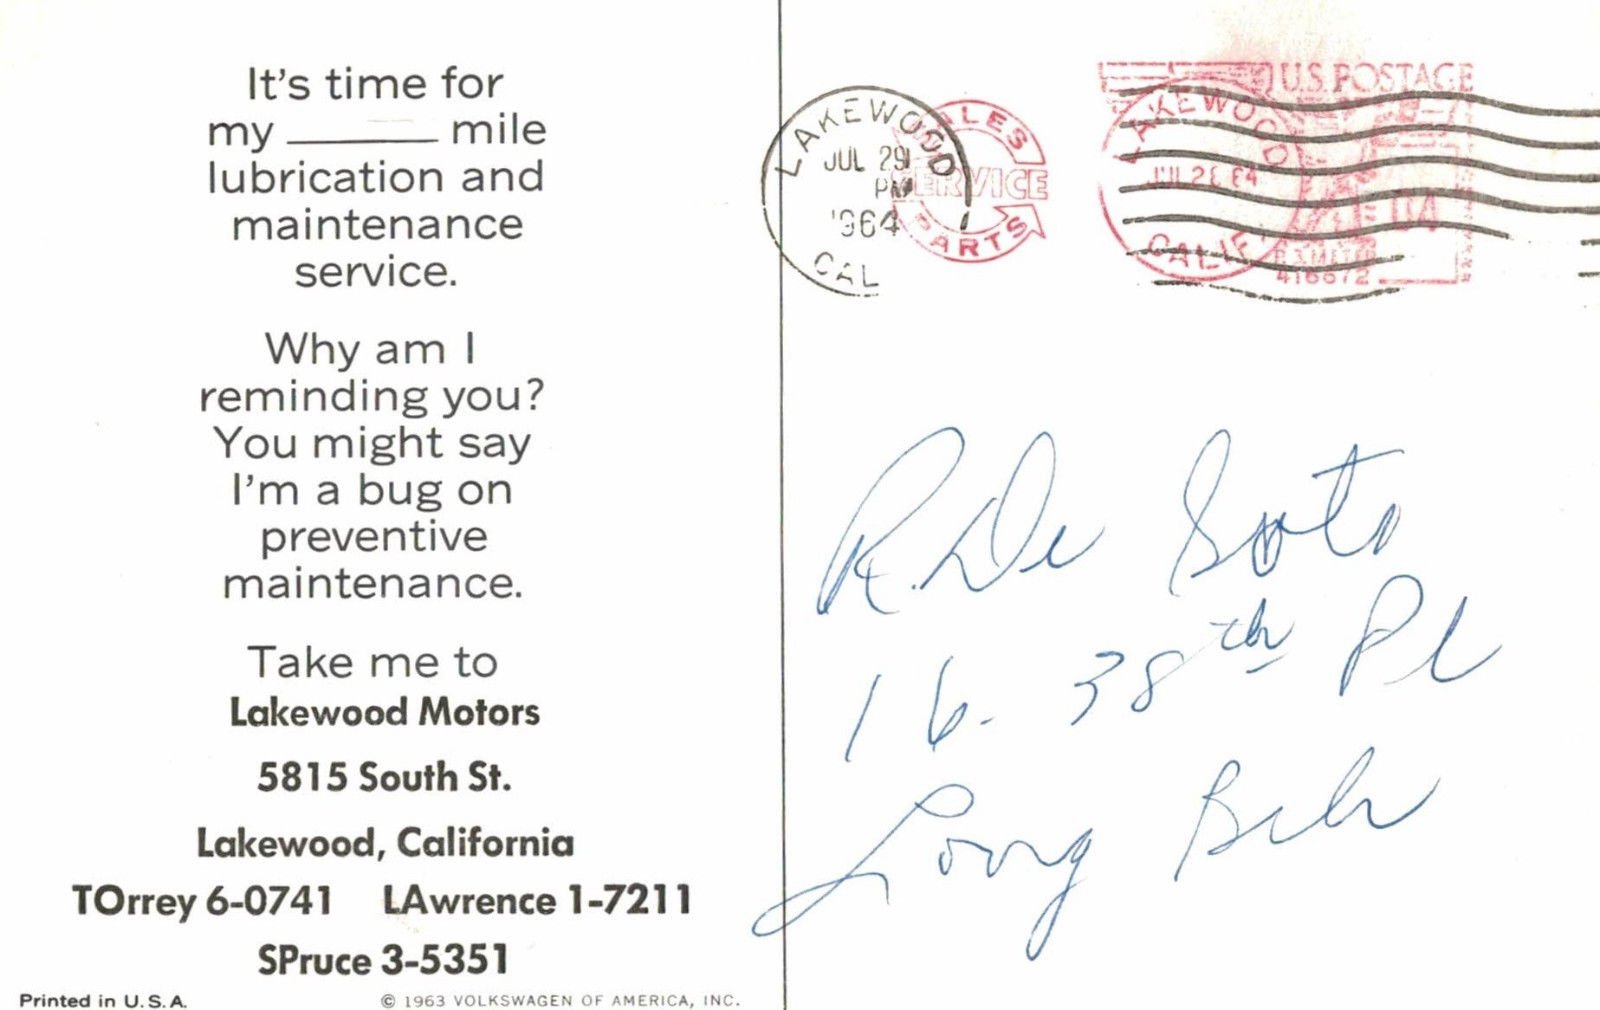 It's time for
my ______ mile
lubrication and
maintenance
service.
Why am I
reminding you?
You might say
I'm a bug on
preventive
maintenance.
Take me to
Lakewood Motors
5815 South St.
Lakewood, California
TOrrey 6-0741 LAwrence 1-7211
SPruce 3-5351
Printed in U.S.A.
© 1963 VOLKSWAGEN OF AMERICA, INC.
LAKEWOOD
JUL 29
PM
1964
CAL
SALES
SERVICE
PARTS
U.S. POSTAGE
LAKEWOOD
CALIF.
P.B. METER
416672
R. De Soto
16 - 38th Pl
Long Bch